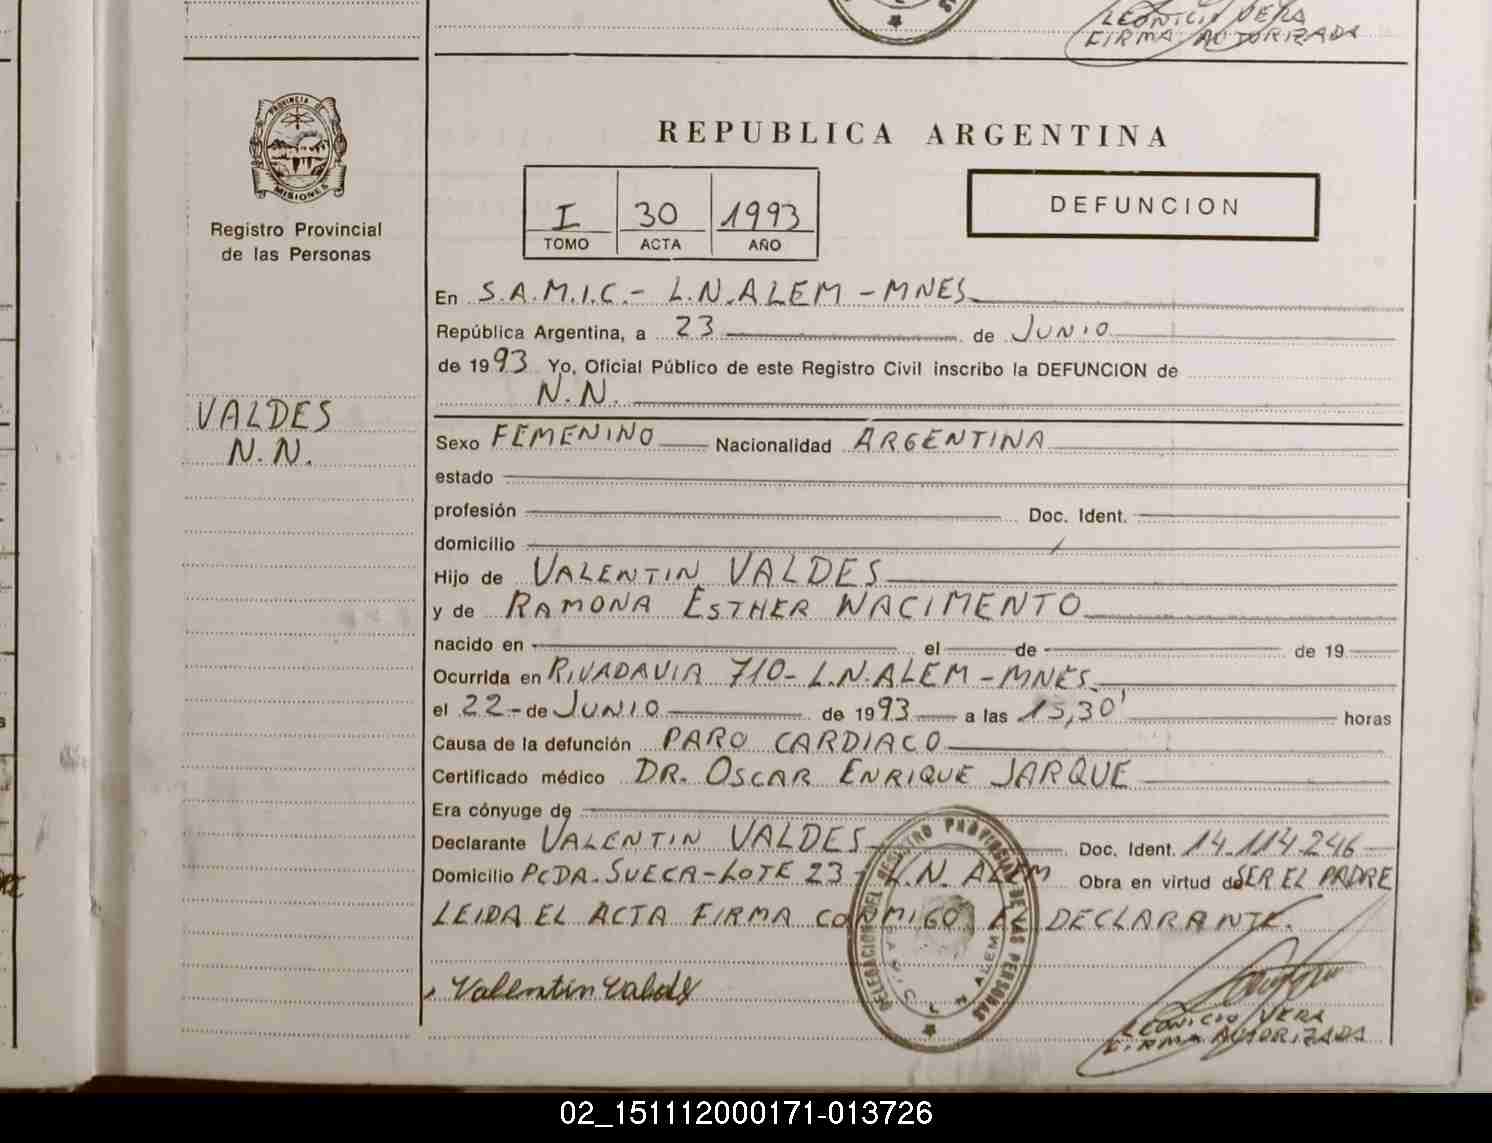 LEONICIO VERA
FIRMA AUTORIZADA
PROVINCIA DE
MISIONES
Registro Provincial
de las Personas
VALDES
N.N.
REPUBLICA ARGENTINA
I 30 1993
TOMO ACTA AÑO
DEFUNCION
En S.A.M.I.C.- L.N.ALEM - MNES
República Argentina, a 23 de JUNIO
de 1993 Yo, Oficial Público de este Registro Civil inscribo la DEFUNCION de
N.N.
Sexo FEMENINO Nacionalidad ARGENTINA
estado
profesión Doc. Ident.
domicilio
Hijo de VALENTIN VALDES
y de RAMONA ESTHER NACIMENTO
nacido en el de de 19
Ocurrida en RIVADAVIA 710- L.N.ALEM - MNES
el 22 - de JUNIO de 1993 a las 15,30' horas
Causa de la defunción PARO CARDIACO
Certificado médico DR. OSCAR ENRIQUE JARQUE
Era cónyuge de
Declarante VALENTIN VALDES Doc. Ident. 14.114.246
Domicilio PCDA. SUECA - LOTE 23 - L.N. ALEM Obra en virtud de SER EL PADRE
LEIDA EL ACTA FIRMA CONMIGO EL DECLARANTE.
Valentin Valdes
DELEGACION DEL REGISTRO PROVINCIAL DE LAS PERSONAS
L. N. ALEM
LEONICIO VERA
FIRMA AUTORIZADA
02_151112000171-013726